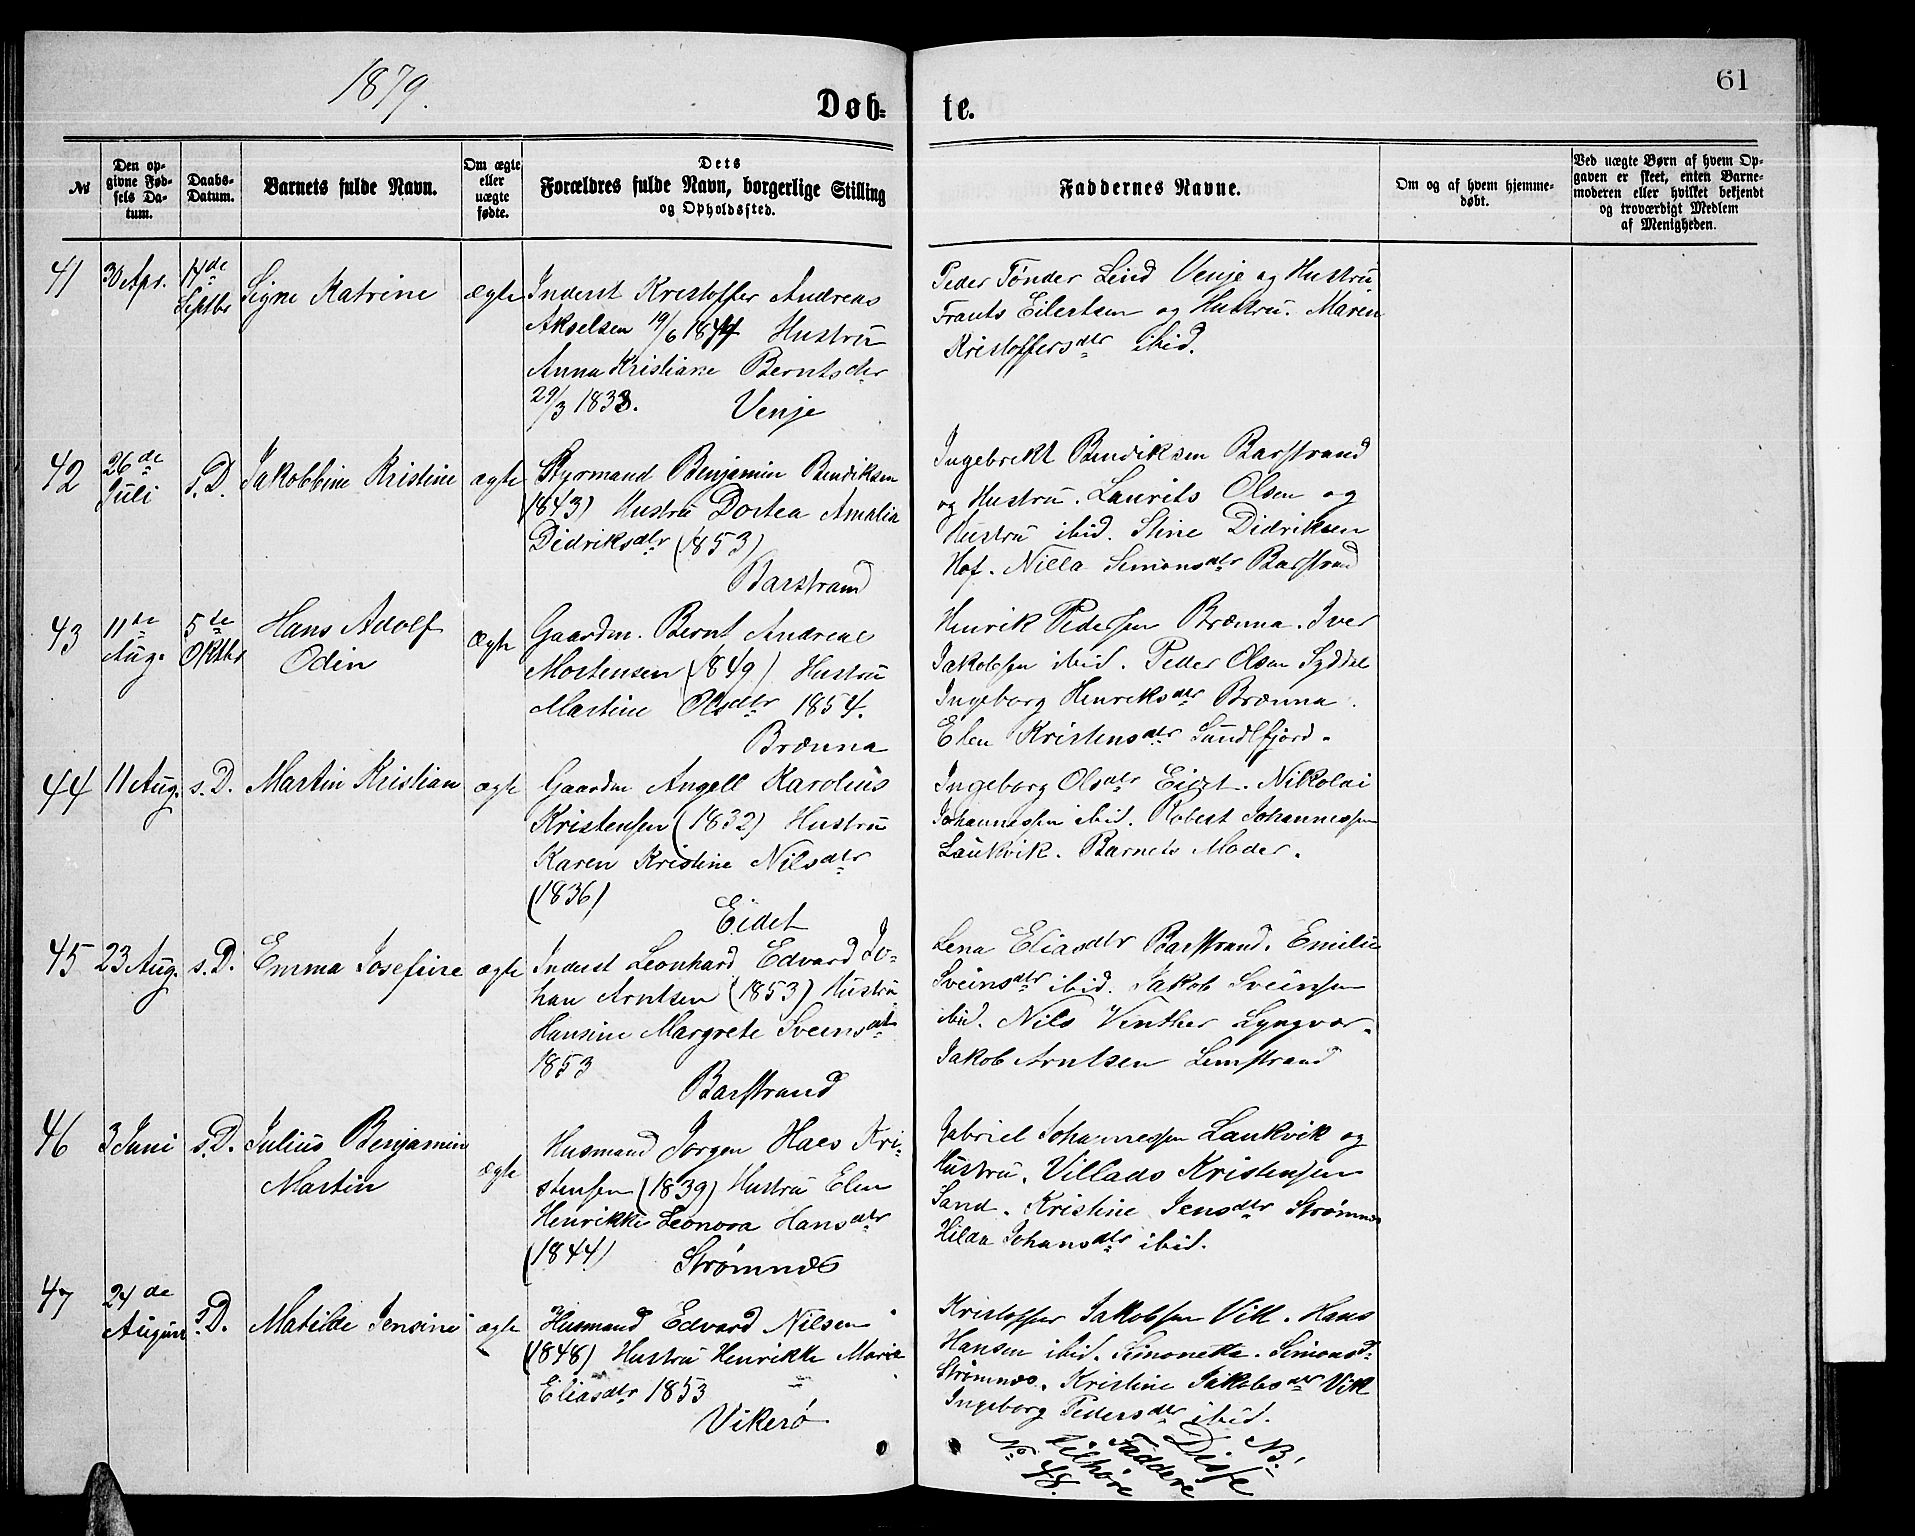 1879.
61
Døb-te.
No
Den opgivne Fødsels Datum.
Daabs-Datum.
Barnets fulde Navn.
Om ægte eller uægte fødte.
Dets Forældres fulde Navn, borgerlige Stilling og Opholdssted.
Faddernes Navne.
Om og af hvem hjemmedøbt.
Ved uægte Børn af hvem Opgaven er skeet, enten Barnemoderen eller hvilket bekjendt og troværdigt Medlem af Menigheden.
41
30 Apr.
14de Septbr
Signe Katrine
ægte
Inderst Kristoffer Andreas
Akselsen 19/6 1844 Hustru
Anna Kristiane Berntsdtr
29/3 1838. Venje
Peder Tønder Lind Venje og Hustru
Frants Eilertsen og Hustru. Maren
Kristoffersdtr ibid.
42
26de Juli
s.D.
Jakobbine Kristine
ægte
Styrmand Benjamin Bendiksen
(1843) Hustru Dortea Amalia
Didriksdtr (1853)
Barstrand
Ingebrekt Bendiksen Barstrand
og Hustru. Laurits Olsen og
Hustru ibid. Stine Didriksen
Hof. Nilla Simonsdtr Barstrand
43
11te Aug.
5te Oktbr
Hans Adolf
Odin
Ægte
Gaardm. Bernt Andreas
Mortensen (1849) Hustru
Martine Olsdtr 1854.
Brænna
Henrik Pedersen Brænna. Iver
Jakobsen ibid. Peder Olsen Syddal
Ingeborg Henriksdtr Brænna.
Elen Kristensdtr Sundlfjord.
44
11 Aug.
s.D.
Martin Kristian
ægte
Gaardm Angell Karolius
Kristensen (1832) Hustru
Karen Kristine Nilsdtr
(1836)
Eidet
Ingeborg Olsdtr Eidet. Nikolai
Johannessen ibid. Robert Johannessen
Laukvik. Barnets Moder.
45
23 Aug.
s.D.
Emma Josefine
ægte
Inderst Leonhard Edvard Jo-
han Arntsen (1853) Hustru
Hansine Margrete Sveinsdt
1853
Barstrand
Lena Eliasdtr Barstrand. Emilie
Sveinsdtr ibid. Jakob Sveinsen
ibid. Nils Vinther Lyngvær.
Jakob Arntsen Lemstrand
46
3 Juni
s.D.
Julius Benjamin
Martin
ægte
Husmand Jørgen Haes Kri-
stensen (1839) Hustru Elen
Henrikke Leonora Hansdtr
(1844)
Strømnæs
Gabriel Johannessen Laukvik og
Hustru. Villads Kristensen
Sand. Kristine Jensdtr Strømnæs
Hilda Johansdtr ibid.
47
24de August
s.D.
Matilde Jensine
ægte
Husmand Edvard Nilsen
(1848) Hustru Henrikke Marie
Eliasdtr 1853
Vikerø
Kristoffer Jakobsen Vik. Hans
Hansen ibid. Simonetta Simonsd
Strømnæs. Kristine Jakobsdtr Vik
Ingeborg Pedersdtr ibid.
NB!
Disse
Faddere
tilhøre
No 48.